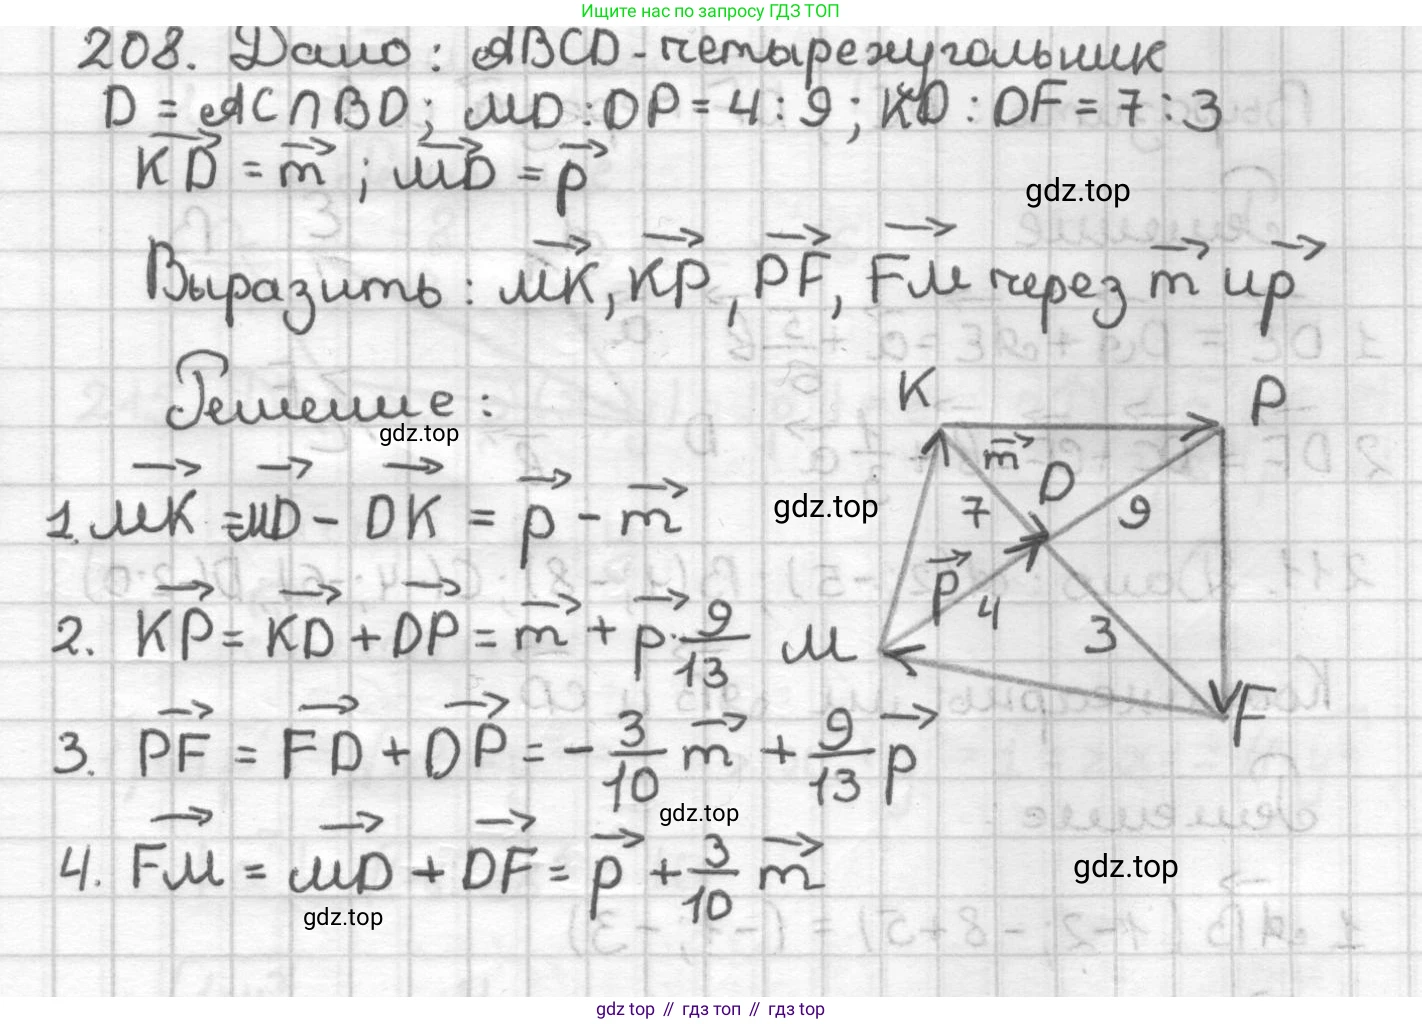 Ищите нас по запросу ГДЗ ТОП
208. Дано: ABCD - четырехугольник
D = AC ∩ BD; MD : DP = 4 : 9; KD : DF = 7 : 3
KD→ = m→; MD→ = p→
gdz.top
Выразить: MK→, KP→, PF→, FM→ через m→ и p→
Решение:
gdz.top
K
P
m→
D
7
9
p→
4
3
M
F
gdz.top
1. MK→ = MD→ - DK→ = p→ - m→
2. KP→ = KD→ + DP→ = m→ + p→ · 9/13
3. PF→ = FD→ + DP→ = - 3/10 m→ + 9/13 p→
gdz.top
4. FM→ = MD→ + DF→ = p→ + 3/10 m→
gdz.top
gdz.top
gdz top // гдз топ // gdz top